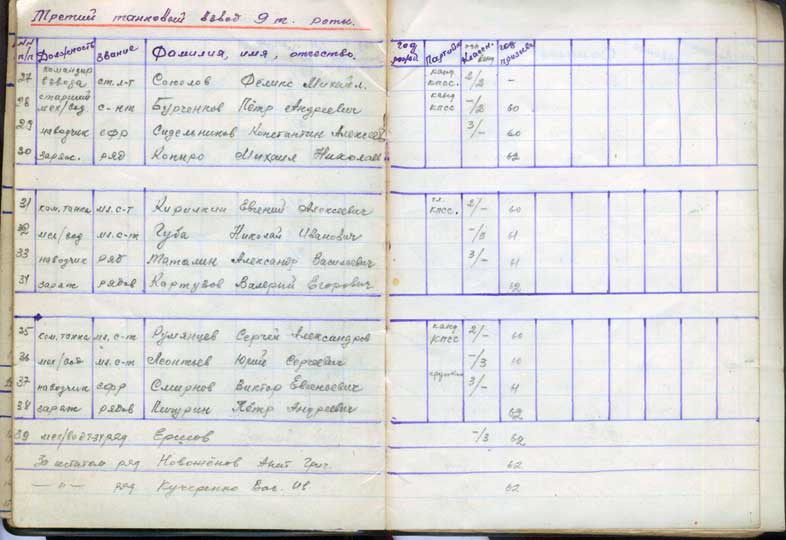 Третий танковый взвод 9 т. роты.
NN п/п Должность Звание Фамилия, имя, отчество. год рожд Партийн. классн. год призыва
27 командир взвода ст. л-т Соколов Феликс Михайл. канд КПСС. 2/2 –
28 старший мех/вод. с-нт Бурченков Пётр Андреевич канд КПСС -/2 60
29 наводчик ефр Сидельников Константин Алексеев 3/- 60
30 заряж. ряд Копыро Михаил Николаев 62
31 ком. танка мл. с-т Кирилкин Евгений Алексеевич чл. КПСС. 2/- 60
32 мех/вод мл. с-т Губа Николай Иванович -/3 61
33 наводчик ряд Маталин Александр Васильевич 3/- 61
34 заряж рядов Картузов Валерий Егорович 62
35 ком. танка мл. с-т Румянцев Сергей Александров канд КПСС 2/- 60
36 мех/вод мл. с-т Леонтьев Юрий Сергеевич -/3 60
37 наводчик ефр Смирнов Виктор Евгеньевич 3/- 61
38 заряж рядов Пичурин Пётр Андреевич 62
39 мех/вод ряд Ершов -/3 62
За штатом ряд Новожёнов Анат Григ. 62
— „ — ряд Кучеренко Вас. Ив. 62